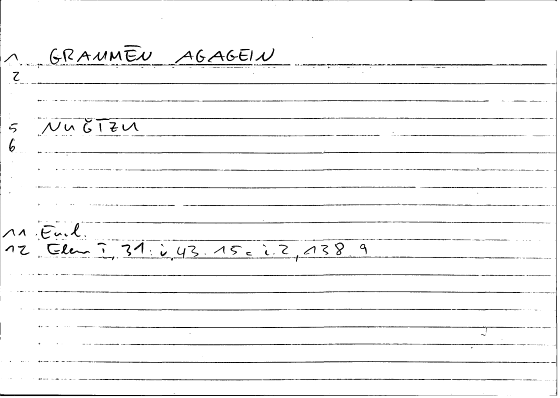 1 GRAMMĒN AGAGEIN
2
5 NuǦĪZu
6
11 Eucl.
12 Elem I, 31: i, 43. 15 = i. 2, 138. 9